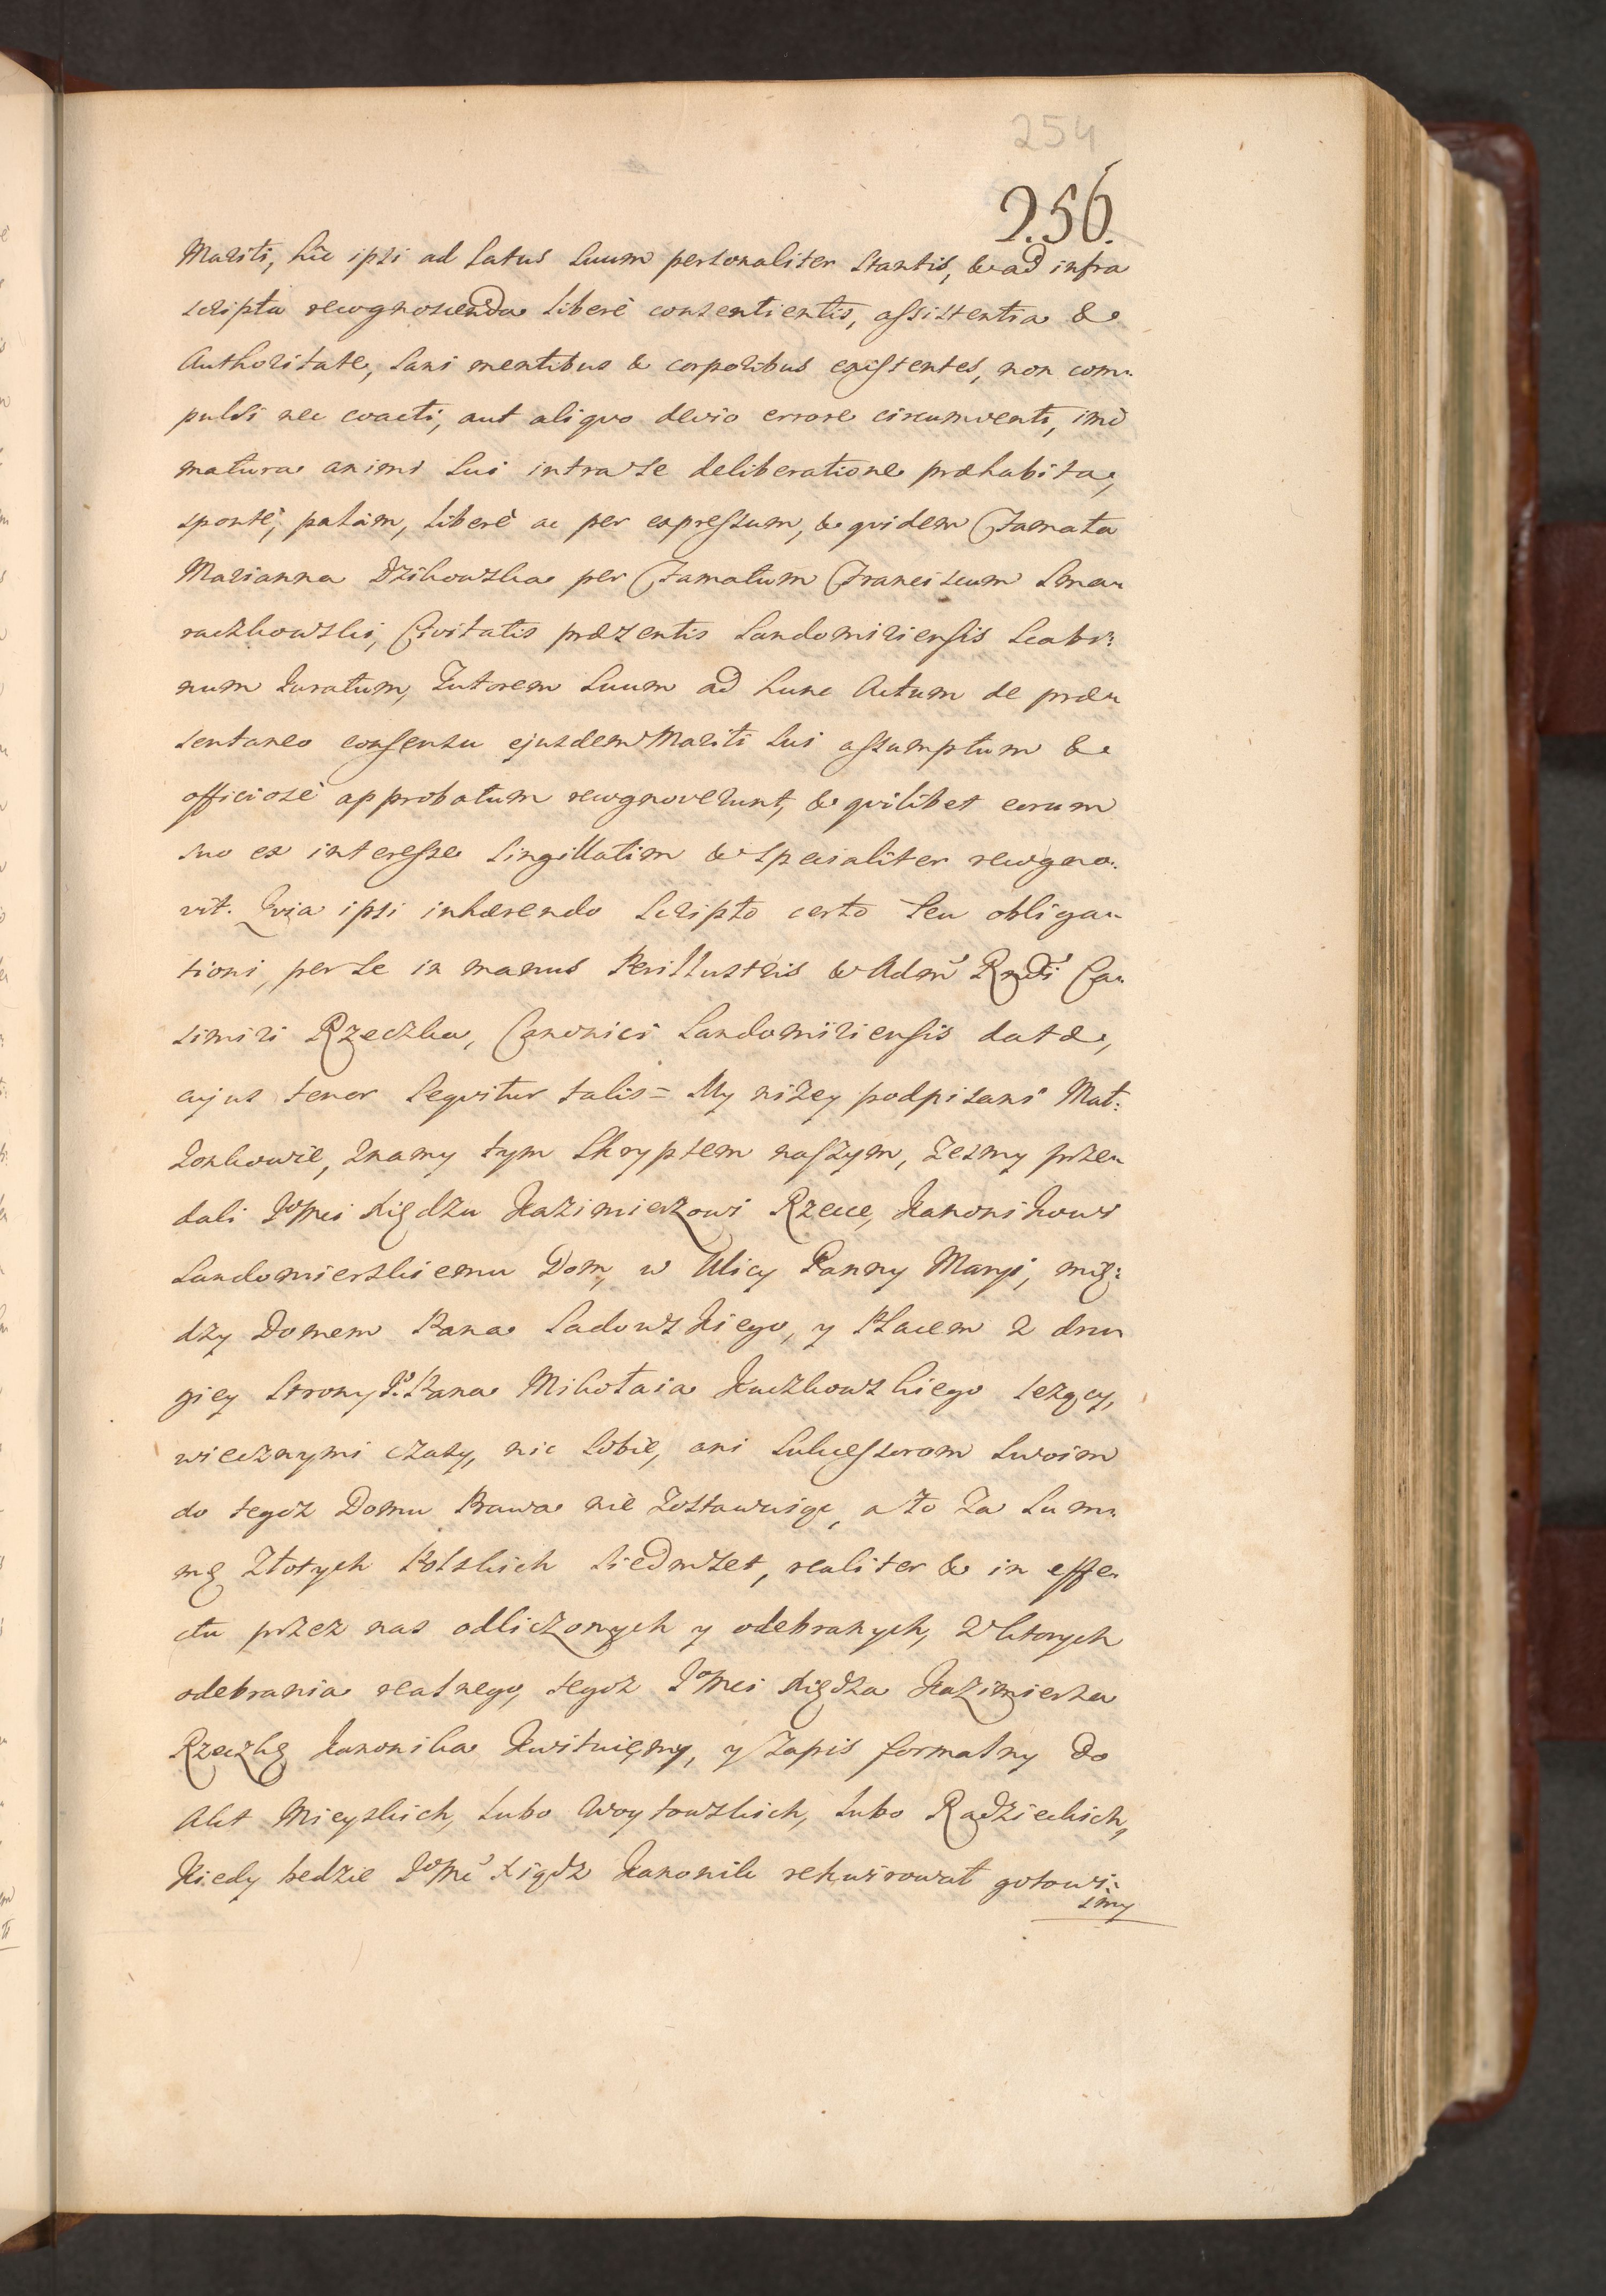 254
256.
Mariti, hic ipsi ad Latus Suum personaliter Stantis, & ad infra
scripta recognoscenda liberè consentientis, assistentia &
Authoritate, Sani mentibus & corporibus existentes, non com-
pulsi nec coacti, aut aliquo devio errore circumventi, imò
matura animi Sui intra se deliberatione præhabita,
spontè, palàm, liberè ac per expressum, & quidem Famata
Marianna Dzikowska per Famatum Franciscum Sma-
raczkowski, Civitatis præsentis Sandomiriensis Scabi-
num Juratum, Tutorem Suum ad hunc Actum de præ-
sentaneo consensu ejusdem Mariti Sui assumptum &
officiosè approbatum recognoverunt, & quilibet eorum
suo ex interesse Singillatim & specialiter recogno-
vit. Quia ipsi inhærendo Scripto certo Seu obliga-
tioni, per Se in manus Perillustris & Adm Rndi Ca-
simiri Rzeczka, Canonici Sandomiriensis datæ,
cujus tenor Sequitur talis= My niżey podpisani Mał-
żonkowie, znamy tym Skryptem naszym, żesmy prze-
dali Jomci Xiędzu Kazimierzowi Rzecce, Kanonikowi
Sandomierskiemu Dom, w Ulicy Panny Maryi, mię-
dzy Domem Pana Sadowskiego, y Placem z dru-
giey Strony P. Pana Mikołaia Kuczkowskiego leżący,
wiecznymi czasy, nic Sobie, ani Sukcessorom Swoim
do tegoż Domu Prawa nie zostawuiąc, a to za Sum-
mę Złotych Polskich Siedmset, realiter & in effe-
ctu przez nas odliczonych y odebranych, z ktorych
odebrania realnego, tegoż Jomci Xiędza Kazimierza
Rzeczkę Kanonika Kwituięmy, y Zapis formalny do
Akt Mieyskich, lubo Woytowskich, lubo Radzieckich,
Kiedy będzie Jomć Xiądz Kanonik rekwirował gotowi-
smy